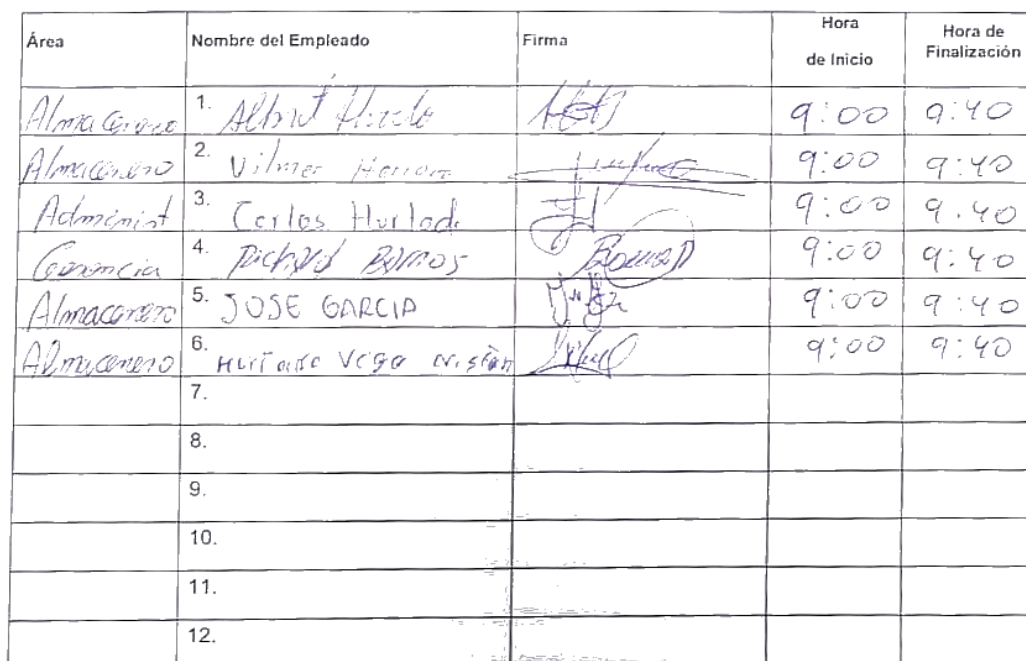 Área Nombre del Empleado Firma Hora de Inicio Hora de Finalización
Almacenero 1. Albert 9:00 9:40
Almacenero 2. Vilmer Herrera 9:00 9:40
Administ 3. Carlos Hurtado 9:00 9:40
Gerencia 4. Richard Barrios 9:00 9:40
Almacenero 5. JOSE GARCIA 9:00 9:40
Almacenero 6. Hurtado Vega cristian 9:00 9:40
7.
8.
9.
10.
11.
12.